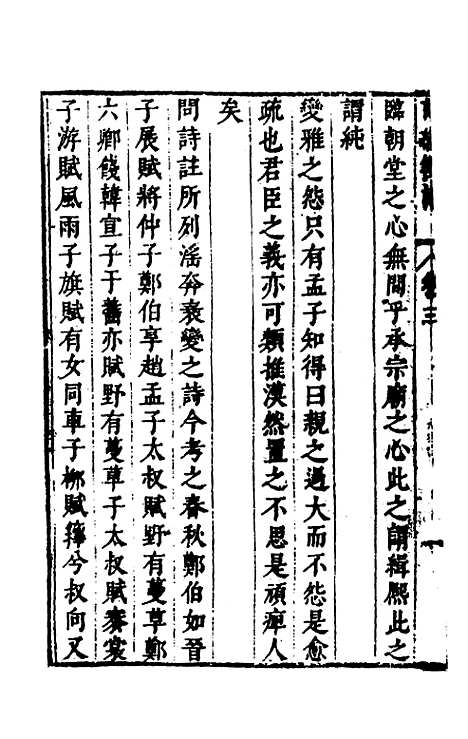 臨朝堂之心無間乎承宗廟之心此之謂緝熙此之
謂純
變雅之怨只有孟子知得曰親之過大而不怨是愈
疏也君臣之義亦可類推漠然置之不思是頑痺人
矣
問詩註所列淫奔衰變之詩今考之春秋鄭伯如晉
子展賦將仲子鄭伯享趙孟子太叔賦野有蔓草鄭
六卿餞韓宣子于𦾔亦賦野有蔓草子太叔賦褰裳
子游賦風雨子旗賦有女同車子栁賦籜兮叔向又